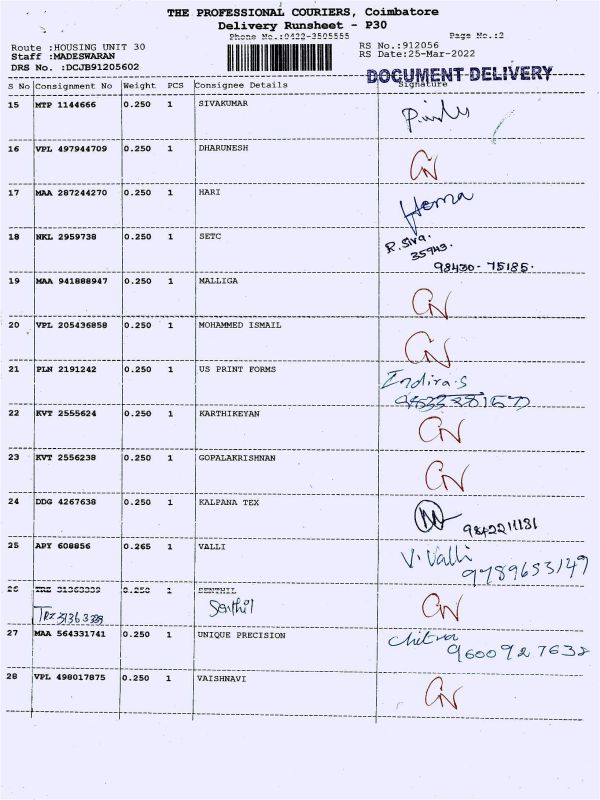 THE PROFESSIONAL COURIERS, Coimbatore
Delivery Runsheet - P30
Phone No.:0422-3505555 Page No.:2
Route :HOUSING UNIT 30 RS No.:912056
Staff :MADESWARAN RS Date:25-Mar-2022
DRS No. :DCJB91205602 DOCUMENT DELIVERY
S No Consignment No Weight PCS Consignee Details Signature
15 MTP 1144666 0.250 1 SIVAKUMAR
16 VPL 497944709 0.250 1 DHARUNESH CN
17 MAA 287244270 0.250 1 HARI Hema
18 NKL 2959738 0.250 1 SETC R. Siva.
35943.
98430-75185.
19 MAA 941888947 0.250 1 MALLIGA CN
20 VPL 205436858 0.250 1 MOHAMMED ISMAIL CN
21 PLN 2191242 0.250 1 US PRINT FORMS Indira.S
22 KVT 2555624 0.250 1 KARTHIKEYAN CN
23 KVT 2556238 0.250 1 GOPALAKRISHNAN CN
24 DDG 4267638 0.250 1 KALPANA TEX
25 APY 608856 0.265 1 VALLI V. Valli
9789653149
26 TRZ 31363339 0.250 1 SENTHIL CN
Senthil
27 MAA 564331741 0.250 1 UNIQUE PRECISION Chitra
9600927632
28 VPL 498017875 0.250 1 VAISHNAVI CN